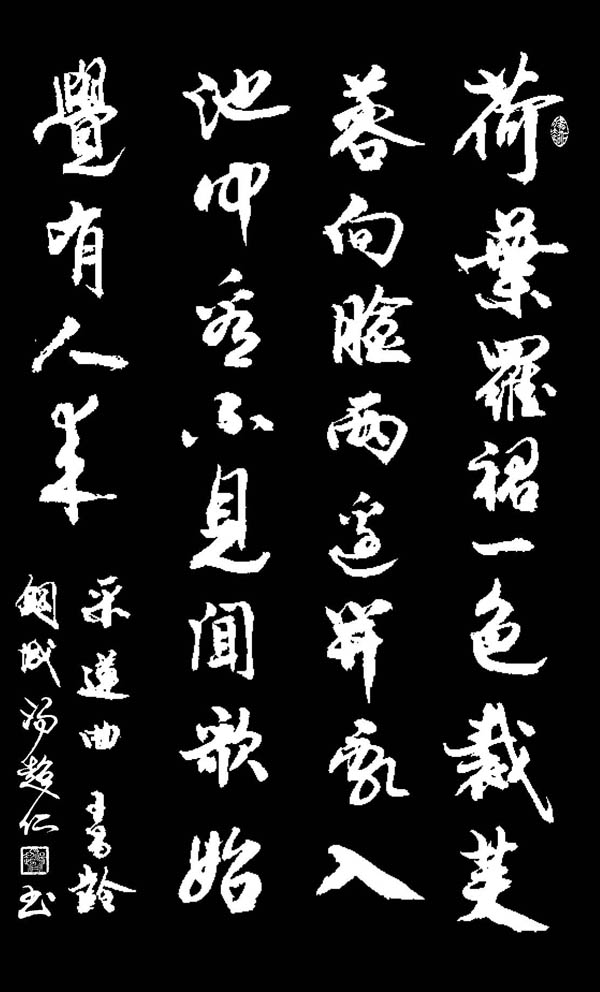 荷葉羅裙一色裁芙
蓉向臉兩邊开亂入
池中看不見聞歌始
覺有人来
采蓮曲 王昌齡
城 超仁 书